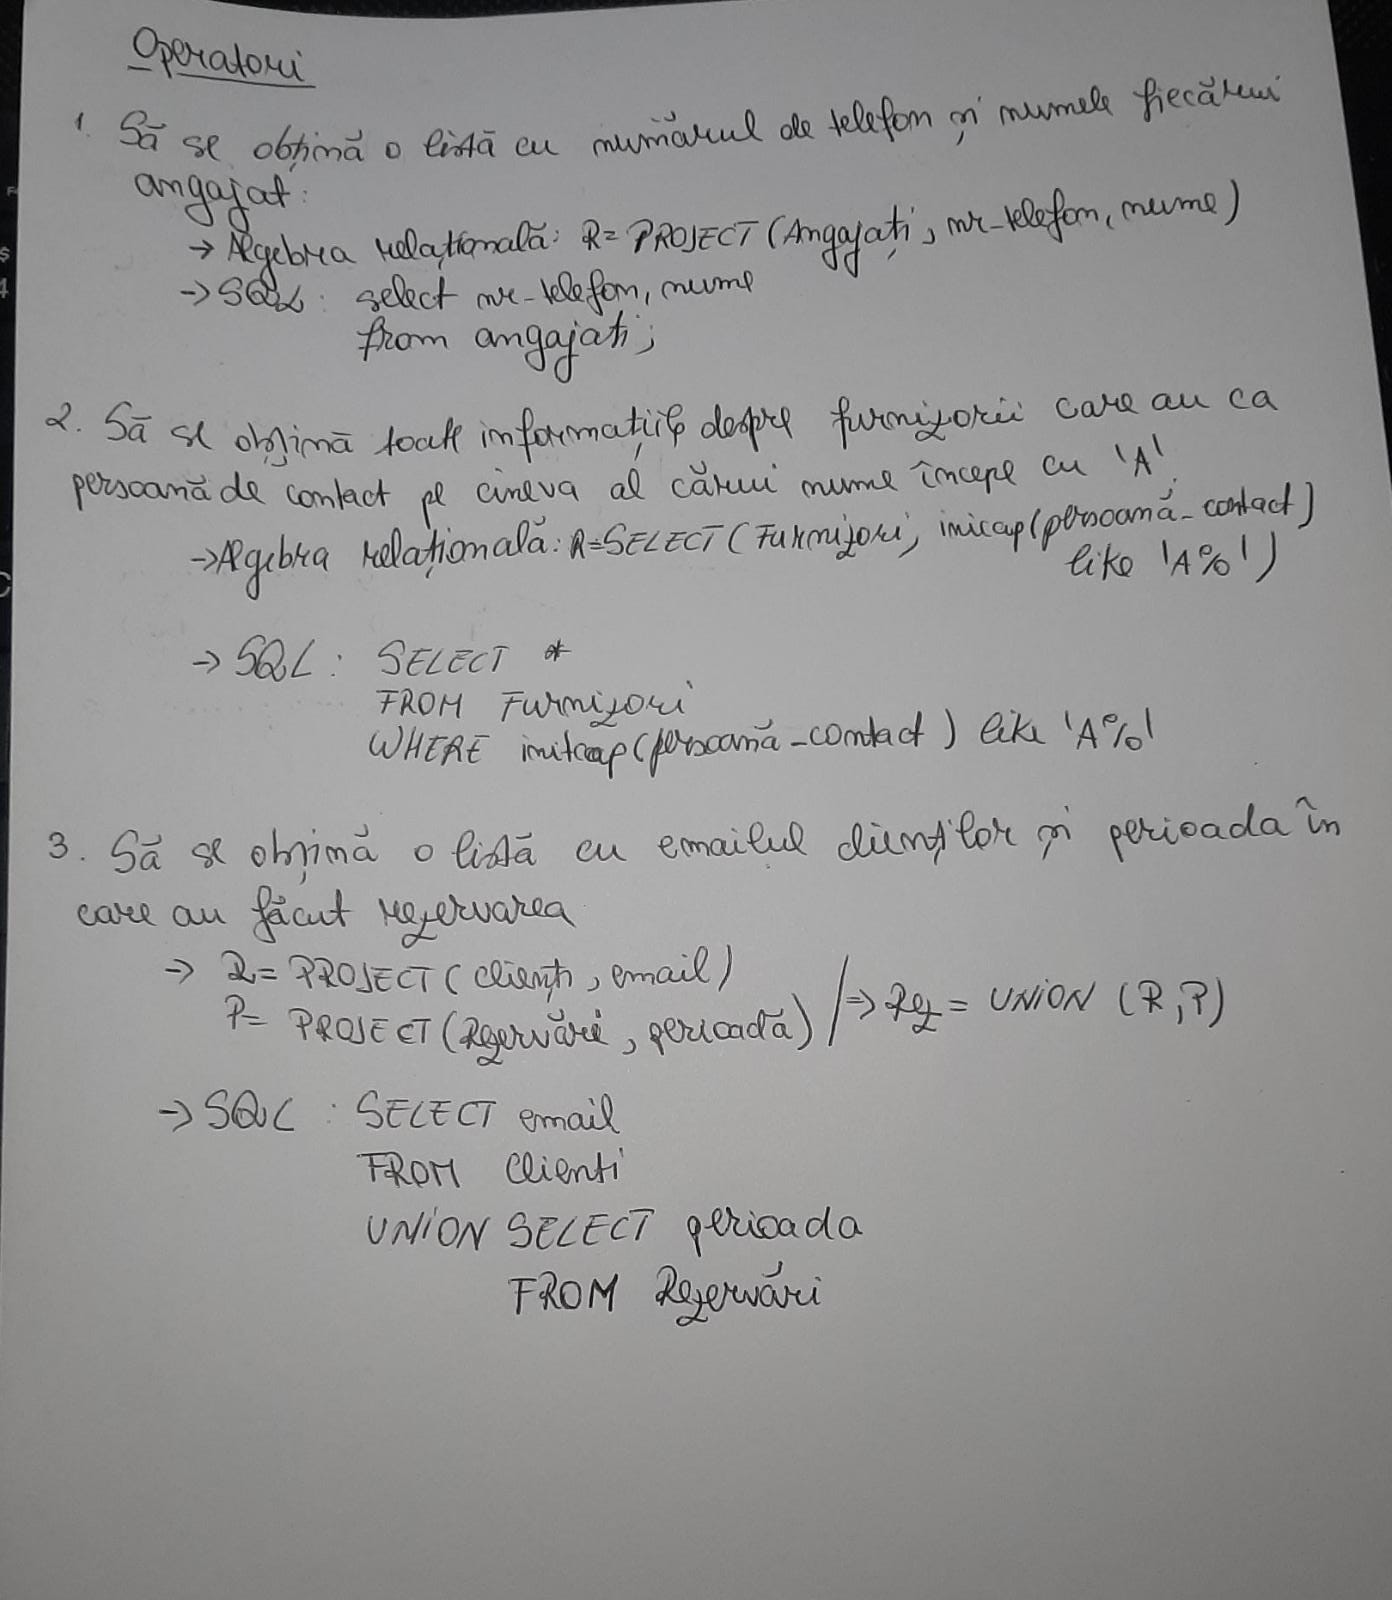 Operatori
1. Să se obțină o listă cu numărul de telefon și numele fiecărui
angajat:
→ Algebra relațională: R= PROJECT (Angajați, nr_telefon, nume)
→ SQL: select nr_telefon, nume
from angajați;
2. Să se obțină toate informațiile despre furnizorii care au ca
persoană de contact pe cineva al cărui nume începe cu 'A'.
→ Algebra relațională: R=SELECT (Furnizori, inicap(persoană_contact)
like 'A%')
→ SQL: SELECT *
FROM Furnizori
WHERE initcap(persoană_contact) like 'A%'
3. Să se obțină o listă cu emailul clienților și perioada în
care au făcut rezervarea
→ R= PROJECT (clienți, email)
P= PROJECT (Rezervări, perioadă) /⇒ Rez = UNION (R,P)
→ SQL : SELECT email
FROM Clienti
UNION SELECT perioada
FROM Rezervări